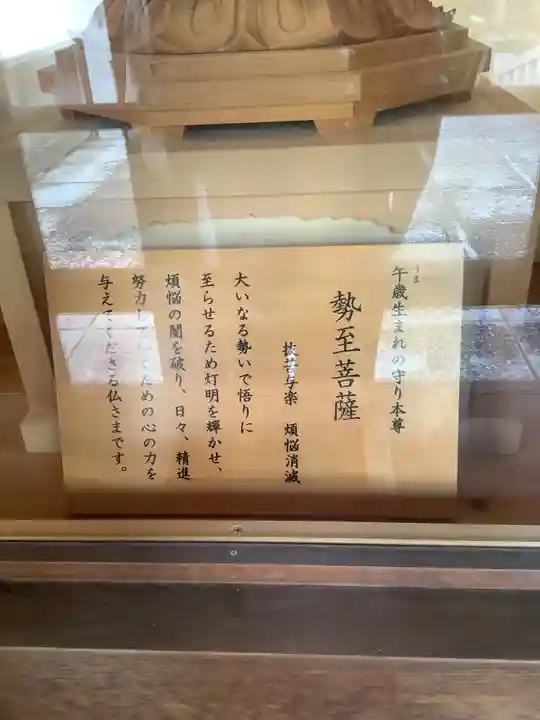 うま
午歳生まれの守り本尊
勢至菩薩
抜苦与楽 煩悩消滅
大いなる勢いで悟りに
至らせるため灯明を輝かせ、
煩悩の闇を破り、日々、精進
努力していくための心の力を
与えてくださる仏さまです。